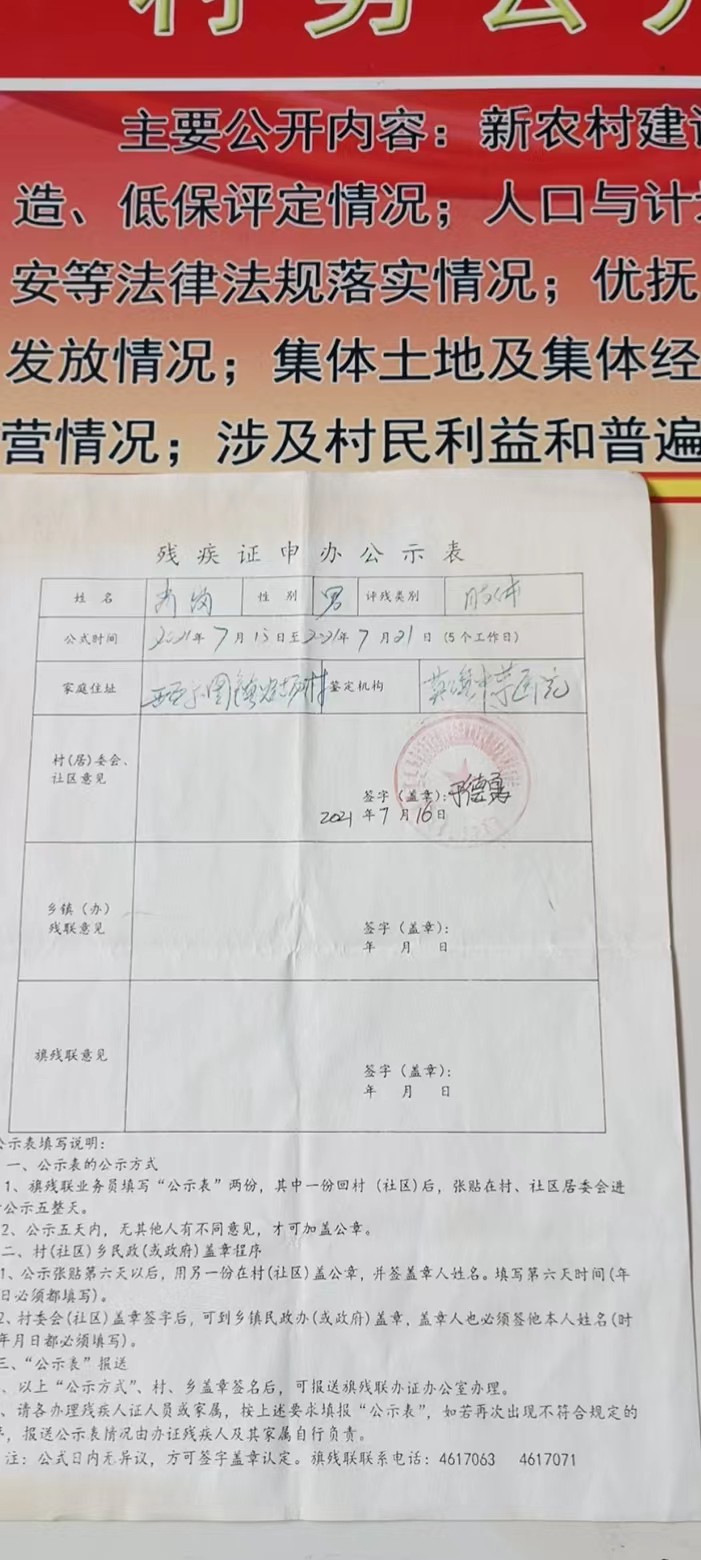 村务公开
主要公开内容：新农村建设
造、低保评定情况；人口与计划
安等法律法规落实情况；优抚
发放情况；集体土地及集体经
营情况；涉及村民利益和普遍
残疾证申办公示表
姓名 性别 男 评残类别 肢体
公式时间 2021年7月15日至2021年7月21日（5个工作日）
家庭住址 鉴定机构
村(居)委会、
社区意见
签字（盖章）：于德勇
2021年7月16日
乡镇（办）
残联意见
签字（盖章）：
年 月 日
旗残联意见
签字（盖章）：
年 月 日
公示表填写说明：
一、公示表的公示方式
1、旗残联业务员填写“公示表”两份，其中一份回村（社区）后，张贴在村、社区居委会进
行公示五整天。
2、公示五天内，无其他人有不同意见，才可加盖公章。
二、村(社区)乡民政(或政府)盖章程序
1、公示张贴第六天以后，用另一份在村(社区)盖公章，并签盖章人姓名。填写第六天时间(年
日必须都填写)。
2、村委会(社区)盖章签字后，可到乡镇民政办(或政府)盖章，盖章人也必须签他本人姓名(时
年月日都必须填写)。
三、“公示表”报送
、以上“公示方式”、村、乡盖章签名后，可报送旗残联办证办公室办理。
、请各办理残疾人证人员或家属，按上述要求填报“公示表”，如若再次出现不符合规定的
，报送公示表情况由办证残疾人及其家属自行负责。
注：公式日内无异议，方可签字盖章认定。旗残联联系电话：4617063 4617071